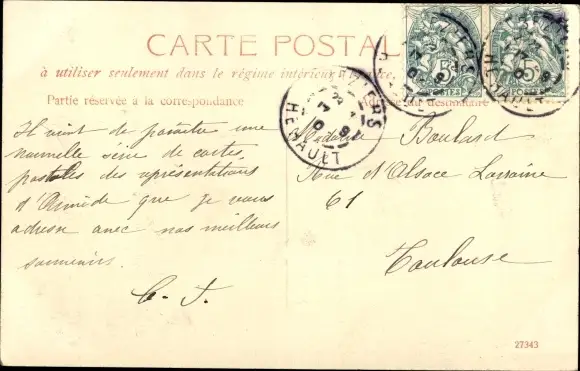 CARTE POSTALE
à utiliser seulement dans le régime intérieur
Partie réservée à la correspondance
Adresse du destinataire
Il vient de paraître une
nouvelle série de cartes
postales des représentations
d'Armide que je vous
adresse avec nos meilleurs
souvenirs.
Madame Boulard
Rue d'Alsace Lorraine
61
Toulouse
HERAULT
5
POSTES
5
POSTES
27343